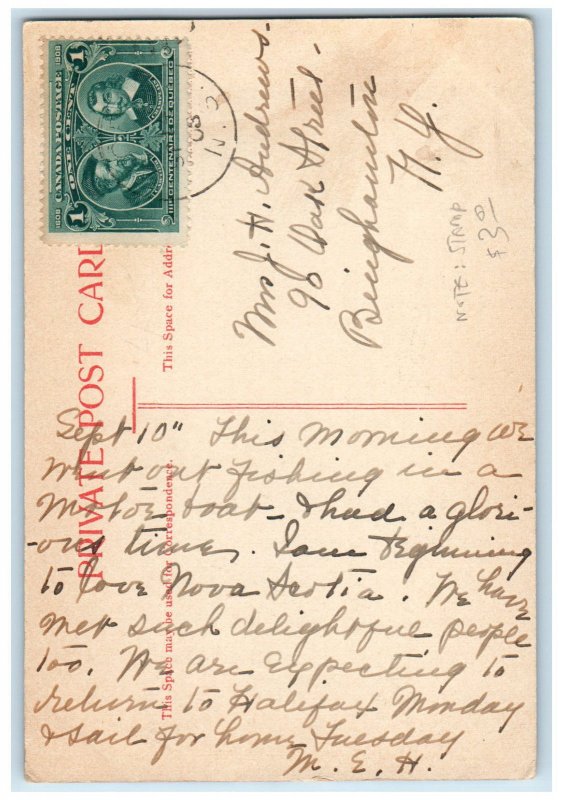 1608 CANADA POSTAGE 1908
1 ONE CENT 1
IIIe CENTENAIRE DE QUÉBEC
08
N.S
PRIVATE POST CARD
This Space for Addre
This Space may be used for Correspondence.
Mrs J. H. Andrews.
96 Oak Street.
Binghamton
N. Y.
NOTE: STAMP
$3 00
Sept 10" This morning we
whent out fishing in a
motor boat & had a glori-
-ous time. I am beginning
to love Nova Scotia. We have
met such delightful people
too. We are expecting to
return to Halifax Monday
& sail for home Tuesday
M. E. H.